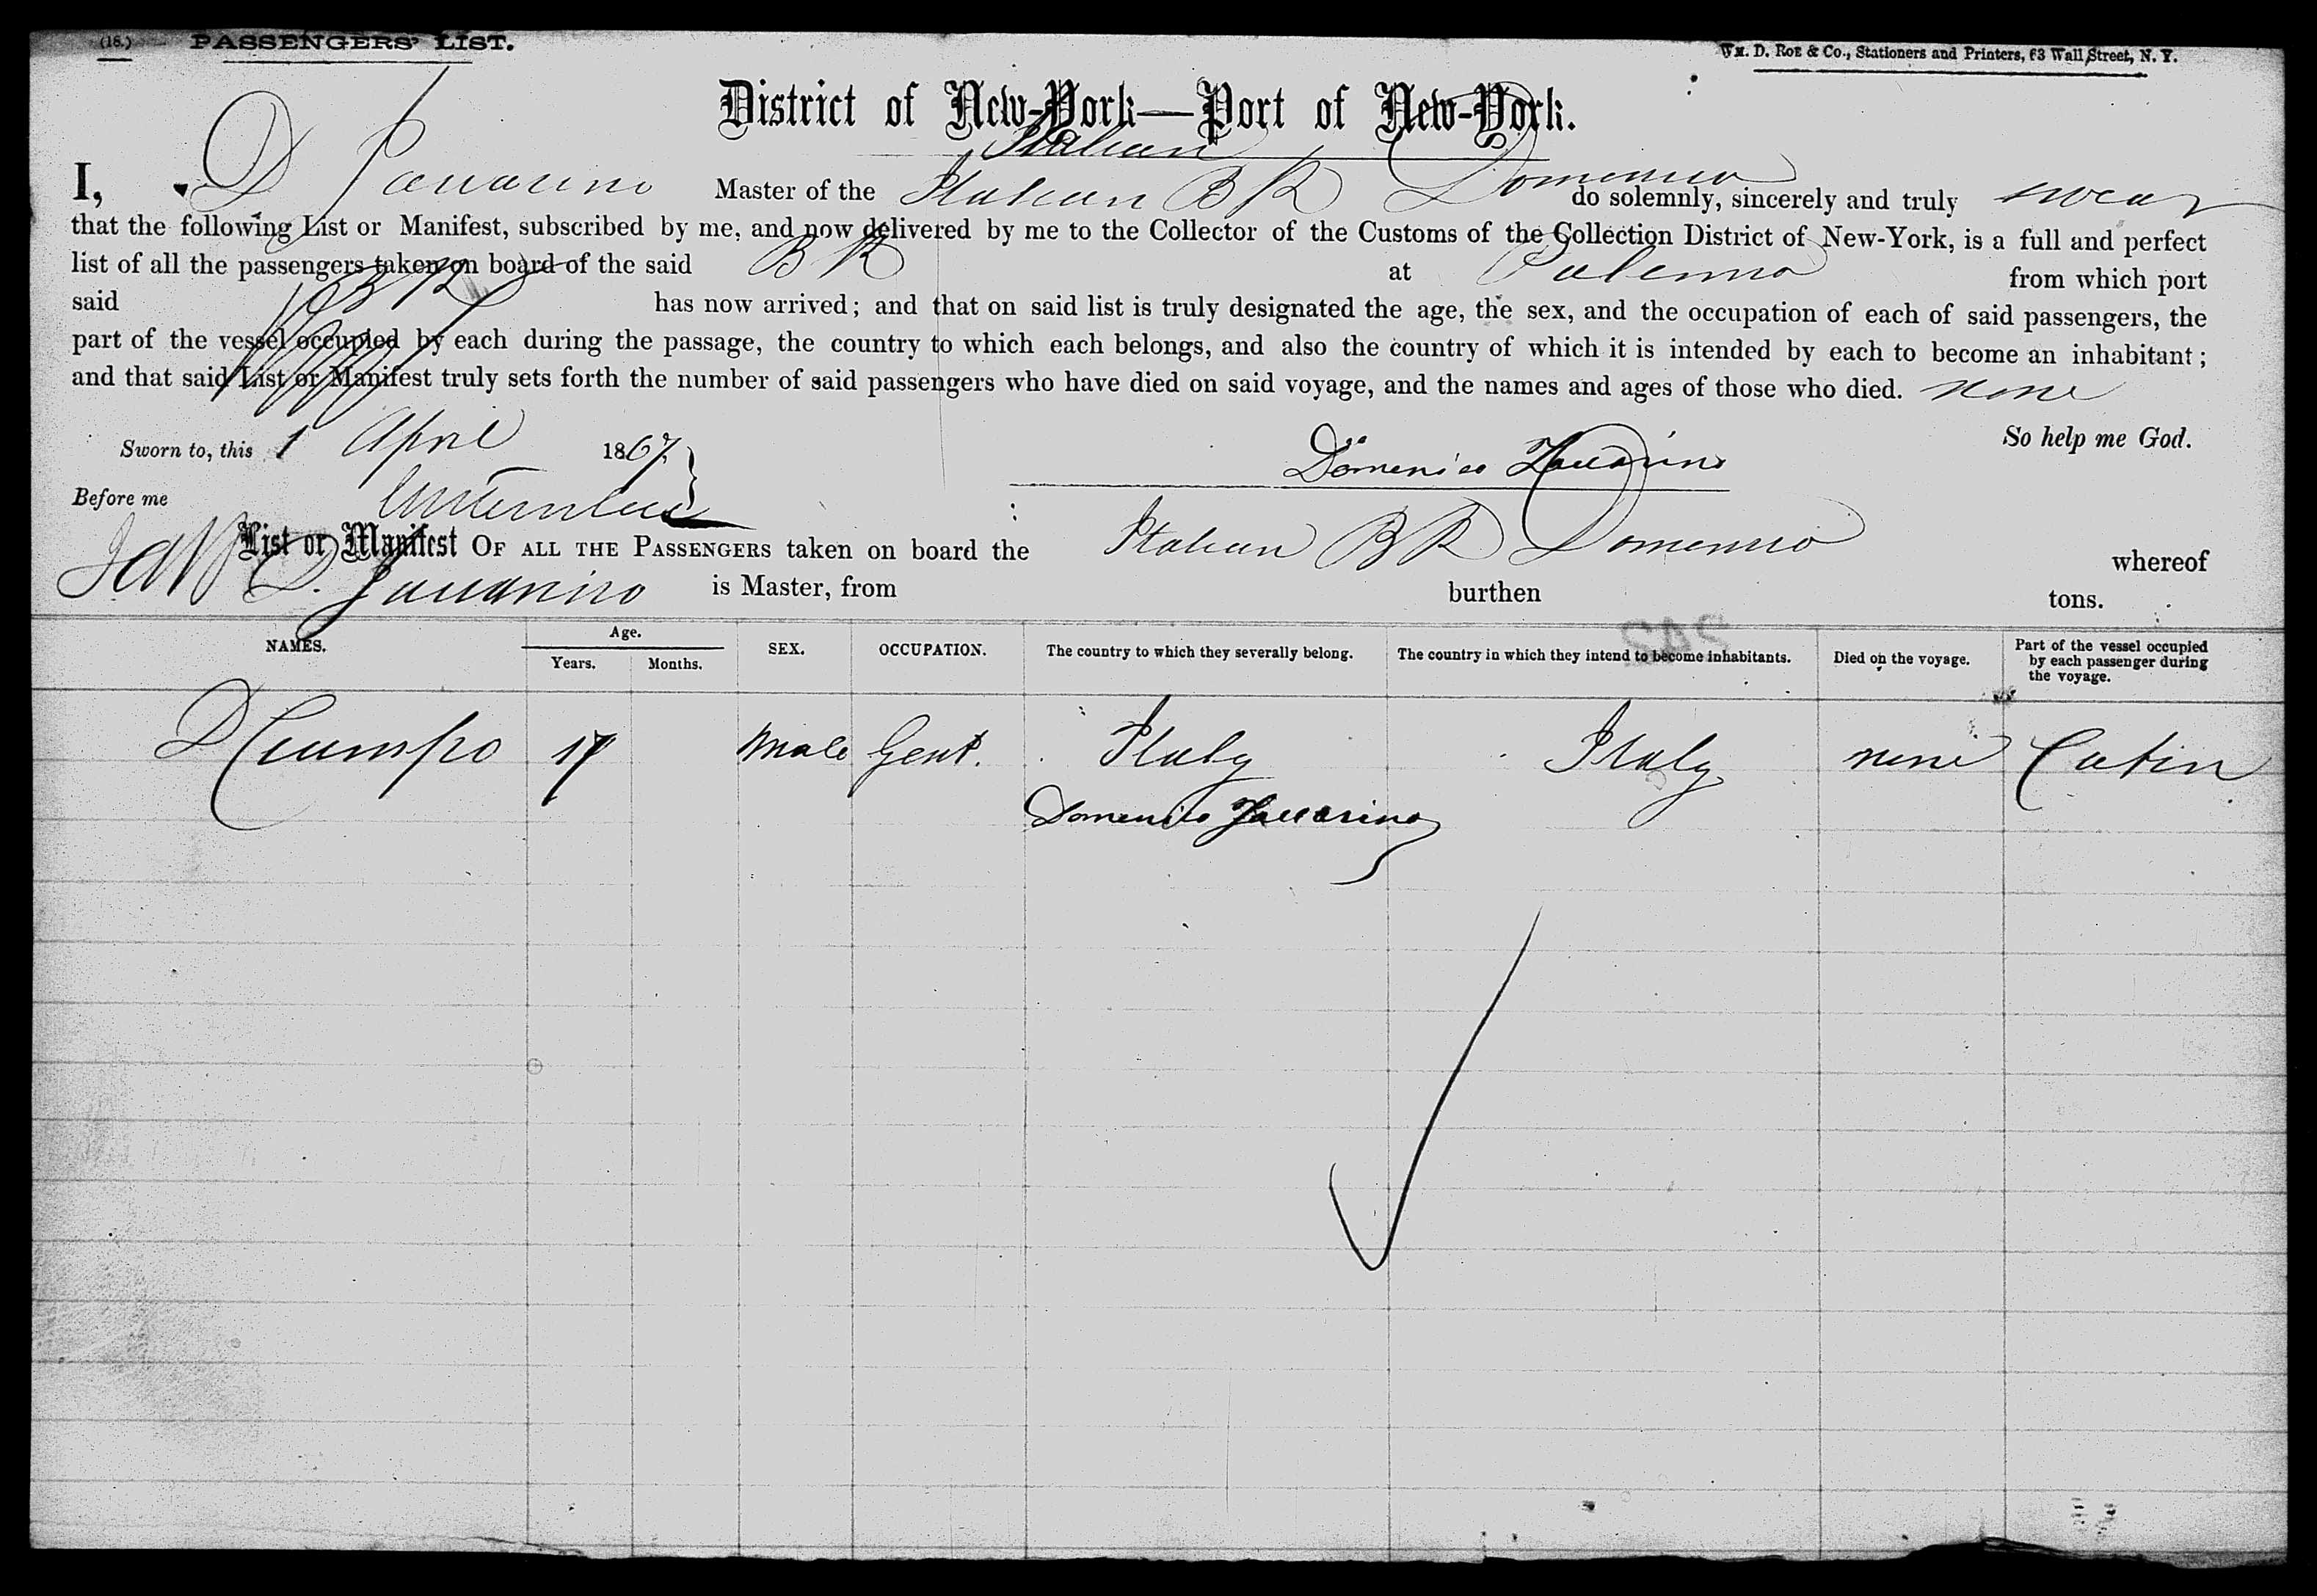 (18.) PASSENGERS' LIST.
Wm. D. Roe & Co., Stationers and Printers, 63 Wall Street, N. Y.
District of New-York—Port of New-York.
Italian
I, D Zaccarino Master of the Italian BK Domenico do solemnly, sincerely and truly swear
that the following List or Manifest, subscribed by me, and now delivered by me to the Collector of the Customs of the Collection District of New-York, is a full and perfect
list of all the passengers taken on board of the said BK at Palermo from which port
said BK has now arrived; and that on said list is truly designated the age, the sex, and the occupation of each of said passengers, the
part of the vessel occupied by each during the passage, the country to which each belongs, and also the country of which it is intended by each to become an inhabitant;
and that said List or Manifest truly sets forth the number of said passengers who have died on said voyage, and the names and ages of those who died. none
So help me God.
Sworn to, this 1 April 1867
Domenico Zaccarino
Before me
List or Manifest OF ALL THE PASSENGERS taken on board the Italian BK Domenico whereof
D. Zaccarino is Master, from burthen tons.
NAMES. Age. Years. Months. SEX. OCCUPATION. The country to which they severally belong. The country in which they intend to become inhabitants. Died on the voyage. Part of the vessel occupied by each passenger during the voyage.
D Ciampo 17 Male Gent. Italy Italy none Cabin
Domenico Zaccarino